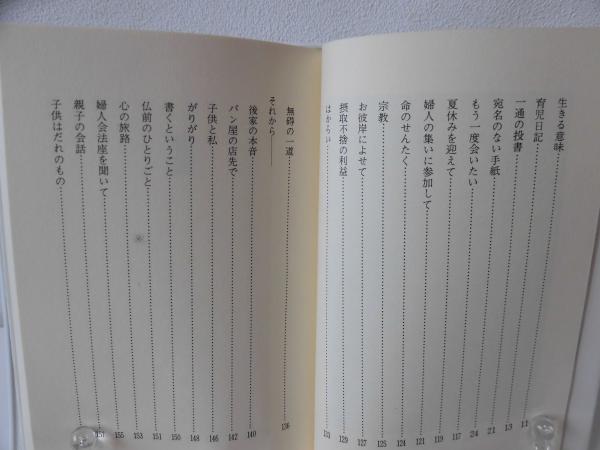 生きる意味……11
育児日記……13
一通の投書……21
宛名のない手紙……24
もう一度会いたい……117
夏休みを迎えて……119
婦人の集いに参加して……121
命のせんたく……124
宗教……125
お彼岸によせて……127
摂取不捨の利益……129
はからい……131
無碍の一道……136
それから――
後家の本音……140
パン屋の店先で……142
子供と私……146
がりがり……148
書くということ……150
仏前のひとりごと……151
心の旅路……153
婦人会法座を聞いて……155
親子の会話……157
子供はだれのもの……